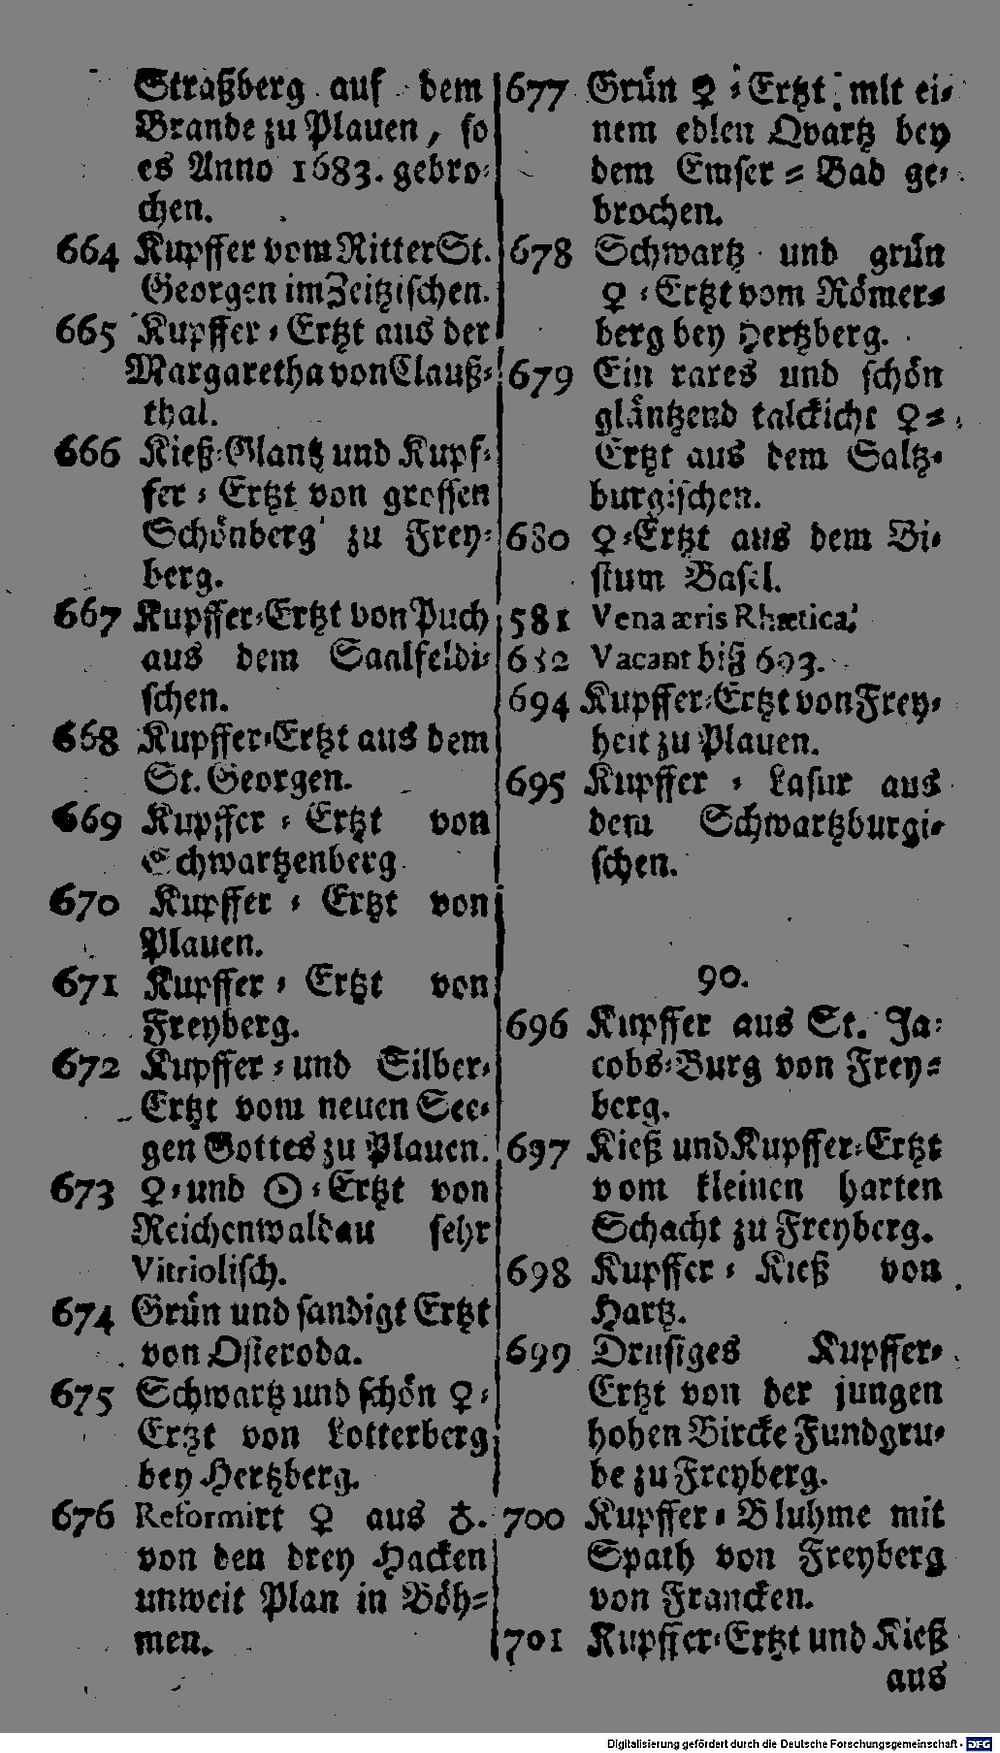 Straßberg auf dem
Brande zu Plauen, so
es Anno 1683. gebro-
chen.
664 Kupffer vom Ritter St.
Georgen im Zeitzischen.
665 Kupffer-Ertzt aus der
Margaretha von Clauß-
thal.
666 Kieß-Glantz und Kupf-
fer-Ertzt von grossen
Schönberg zu Frey-
berg.
667 Kupffer-Ertzt von Puch
aus dem Saalfeldi-
schen.
668 Kupffer-Ertzt aus dem
St. Georgen.
669 Kupffer-Ertzt von
Schwartzenberg
670 Kupffer-Ertzt von
Plauen.
671 Kupffer-Ertzt von
Freyberg.
672 Kupffer-und Silber-
Ertzt vom neuen See-
gen Gottes zu Plauen.
673 ♀-und ☉-Ertzt von
Reichenwaldau sehr
Vitriolisch.
674 Grün und sandigt Ertzt
von Osteroda.
675 Schwartz und schön ♀-
Ertzt von Lotterberg
bey Hertzberg.
676 Reformirt ♀ aus ♁.
von den drey Hacken
unweit Plan in Böh-
men.
677 Grün ♀-Ertzt mit ei-
nem edlen Qvartz bey
dem Emser-Bad ge-
brochen.
678 Schwartz und grün
♀-Ertzt vom Römer-
berg bey Hertzberg.
679 Ein rares und schön
gläntzend talckicht ♀-
Ertzt aus dem Saltz-
burgischen.
680 ♀-Ertzt aus dem Bi-
stum Basel.
581 Vena æris Rhætica.
682 Vacant biß 693.
694 Kupffer-Ertzt von Frey-
heit zu Plauen.
695 Kupffer-Lasur aus
dem Schwartzburgi-
schen.
90.
696 Kupffer aus St. Ja-
cobs-Burg von Frey-
berg.
697 Kieß und Kupffer-Ertzt
vom kleinen harten
Schacht zu Freyberg.
698 Kupffer-Kieß von
Hartz.
699 Drusiges Kupffer-
Ertzt von der jungen
hohen Bircke Fundgru-
be zu Freyberg.
700 Kupffer-Bluhme mit
Spath von Freyberg
von Francken.
701 Kupffer-Ertzt und Kieß
aus
Digitalisierung gefördert durch die Deutsche Forschungsgemeinschaft - DFG